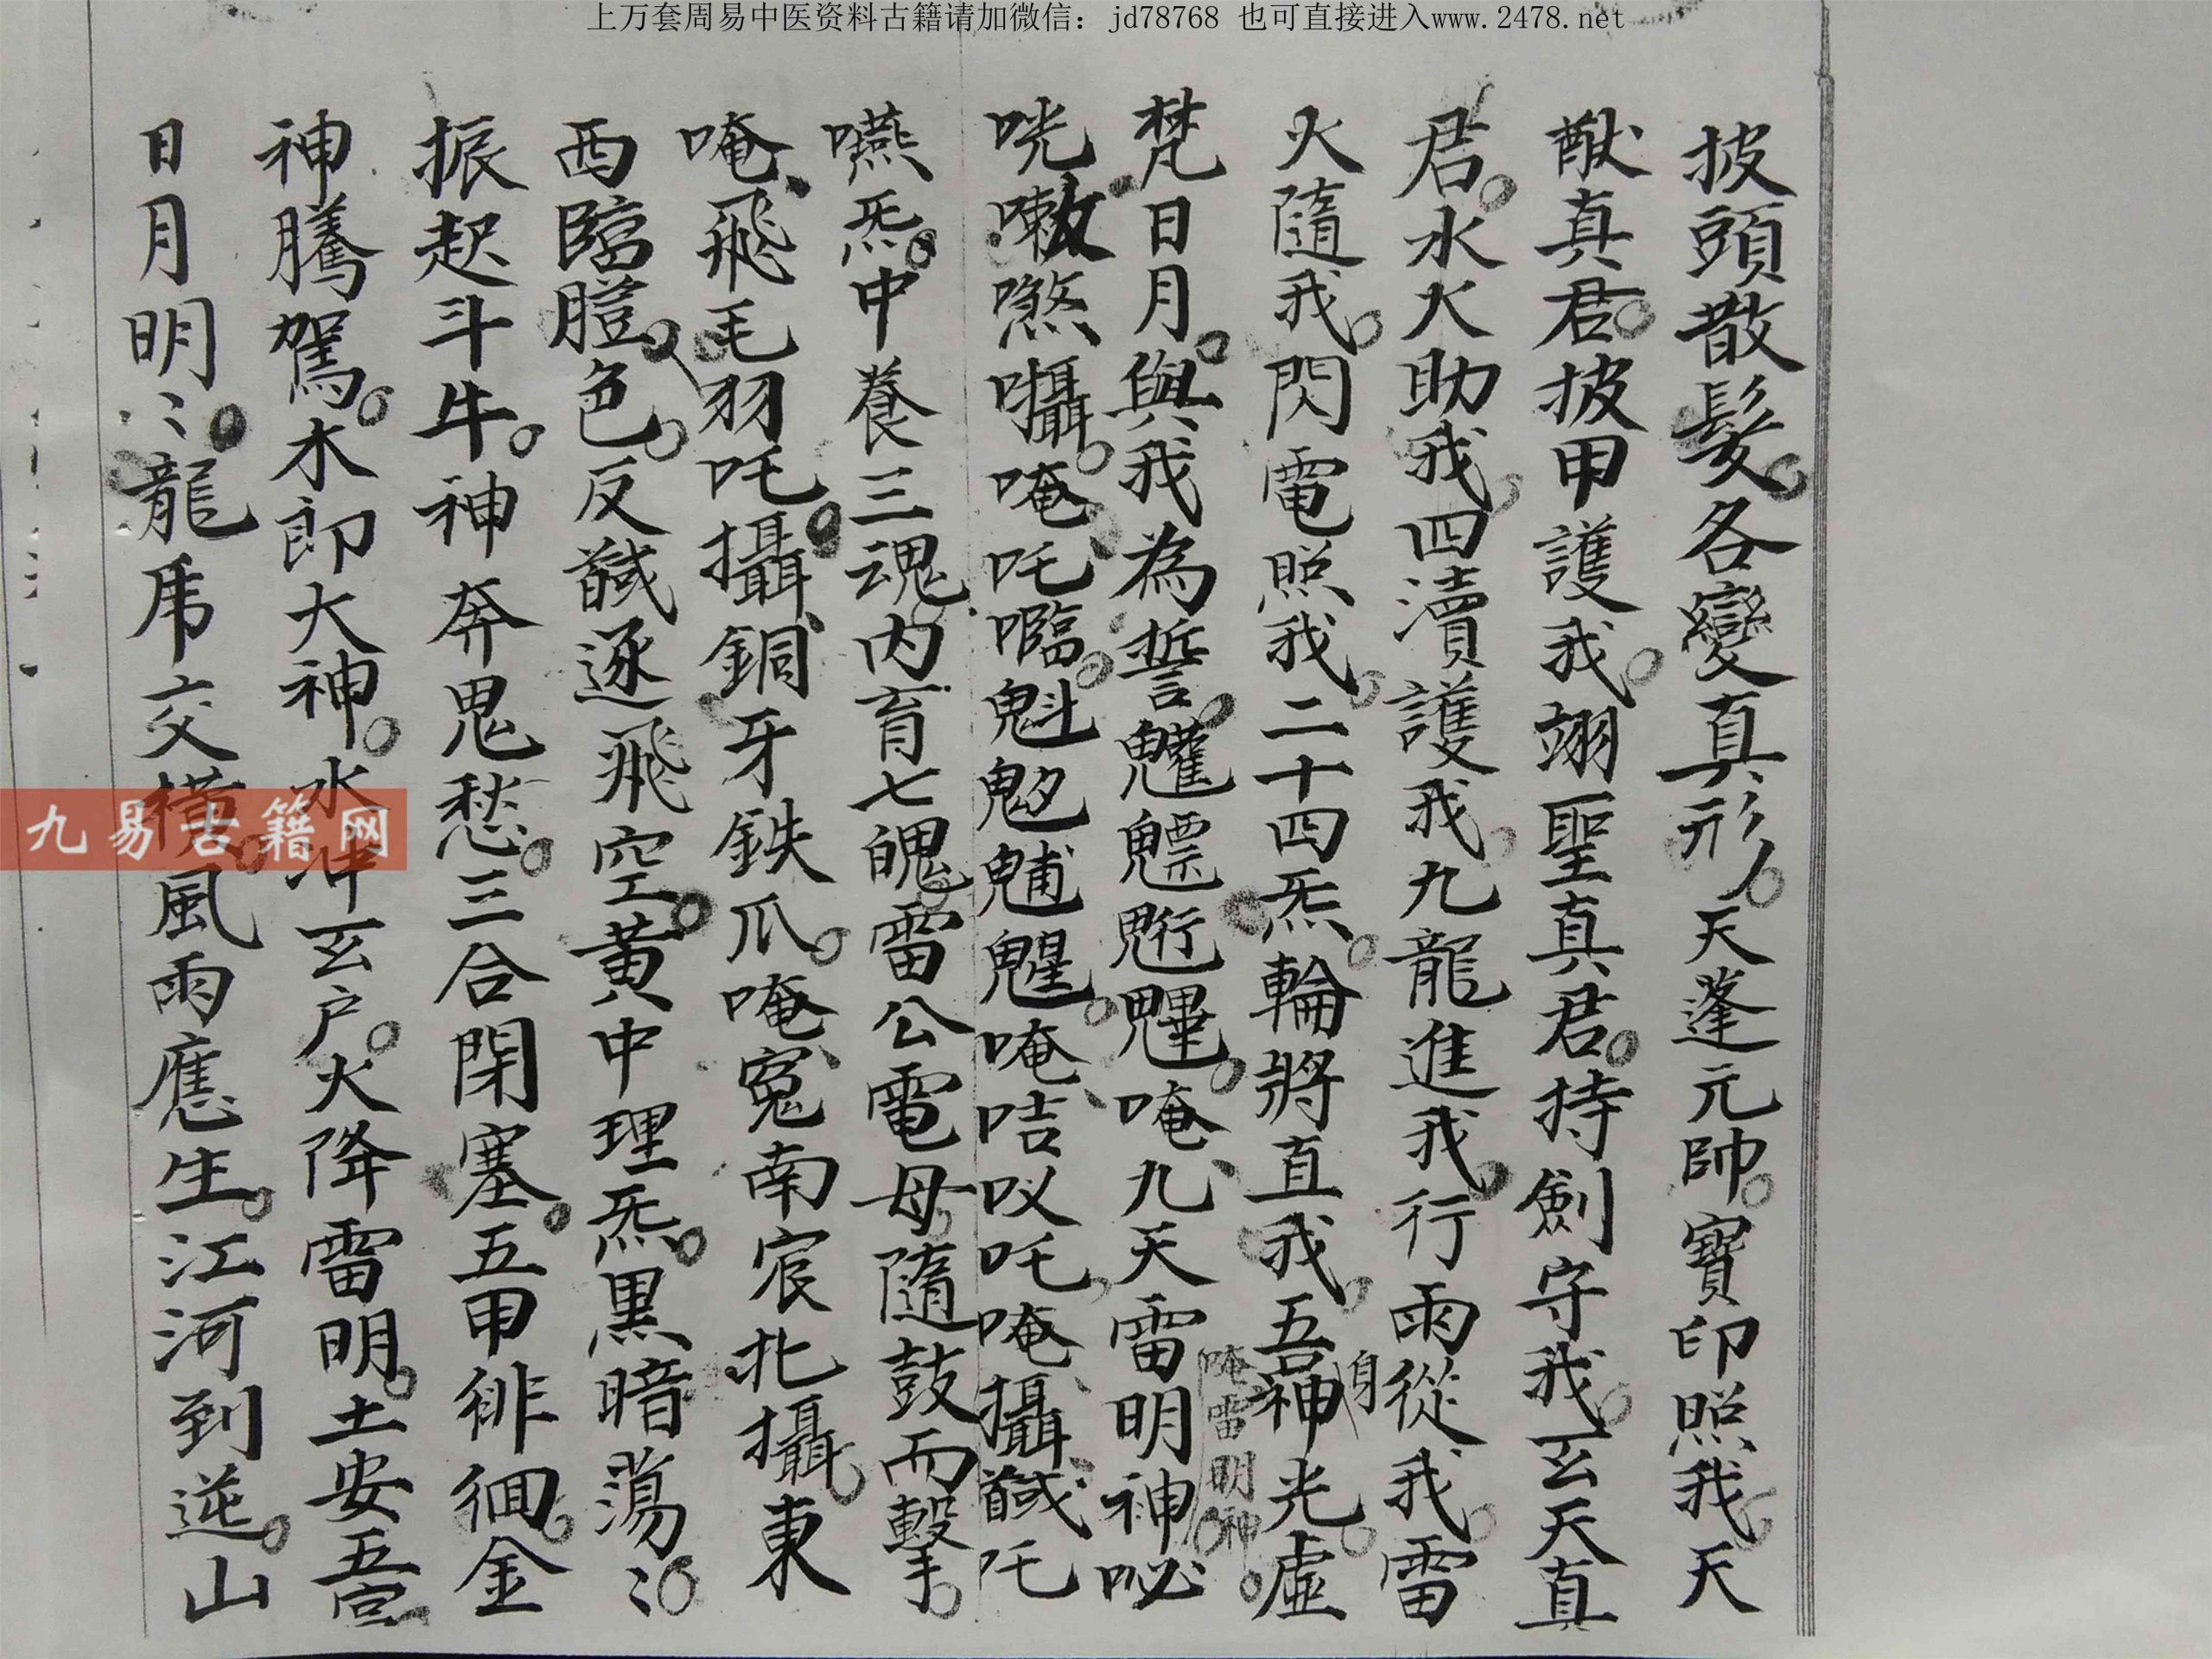 上万套周易中医资料古籍请加微信：jd78768 也可直接进入www.2478.net
披頭散髮各變真形天蓬元帥寶印照我天
猷真君披甲護我翊聖真君持劍守我玄天真
君水火助我四瀆護我九龍進我行雨從我雷
火隨我閃電照我二十四炁輪將直我吾身神光虛
唵雷明神
梵日月與我為誓魋魒䰢魓唵九天雷明神咇
咣嗽㗫囁唵吒𡄴魁魀魖魓唵咭㕥吒唵攝馘吒
嚥炁中養三魂内育七魄雷公電母隨鼓而擊
唵飛毛羽吒攝銅牙鉄爪唵寃南宸北攝東
西臨膛色反馘逐飛空黃中理炁黑暗蕩〻
振起斗牛神奔鬼愁三合閉塞五甲徘徊金
神騰駕木郎大神水冲玄户火降雷明土安吾宫
日月明〻龍虎交橫風雨應生江河到逆山
九易古籍网